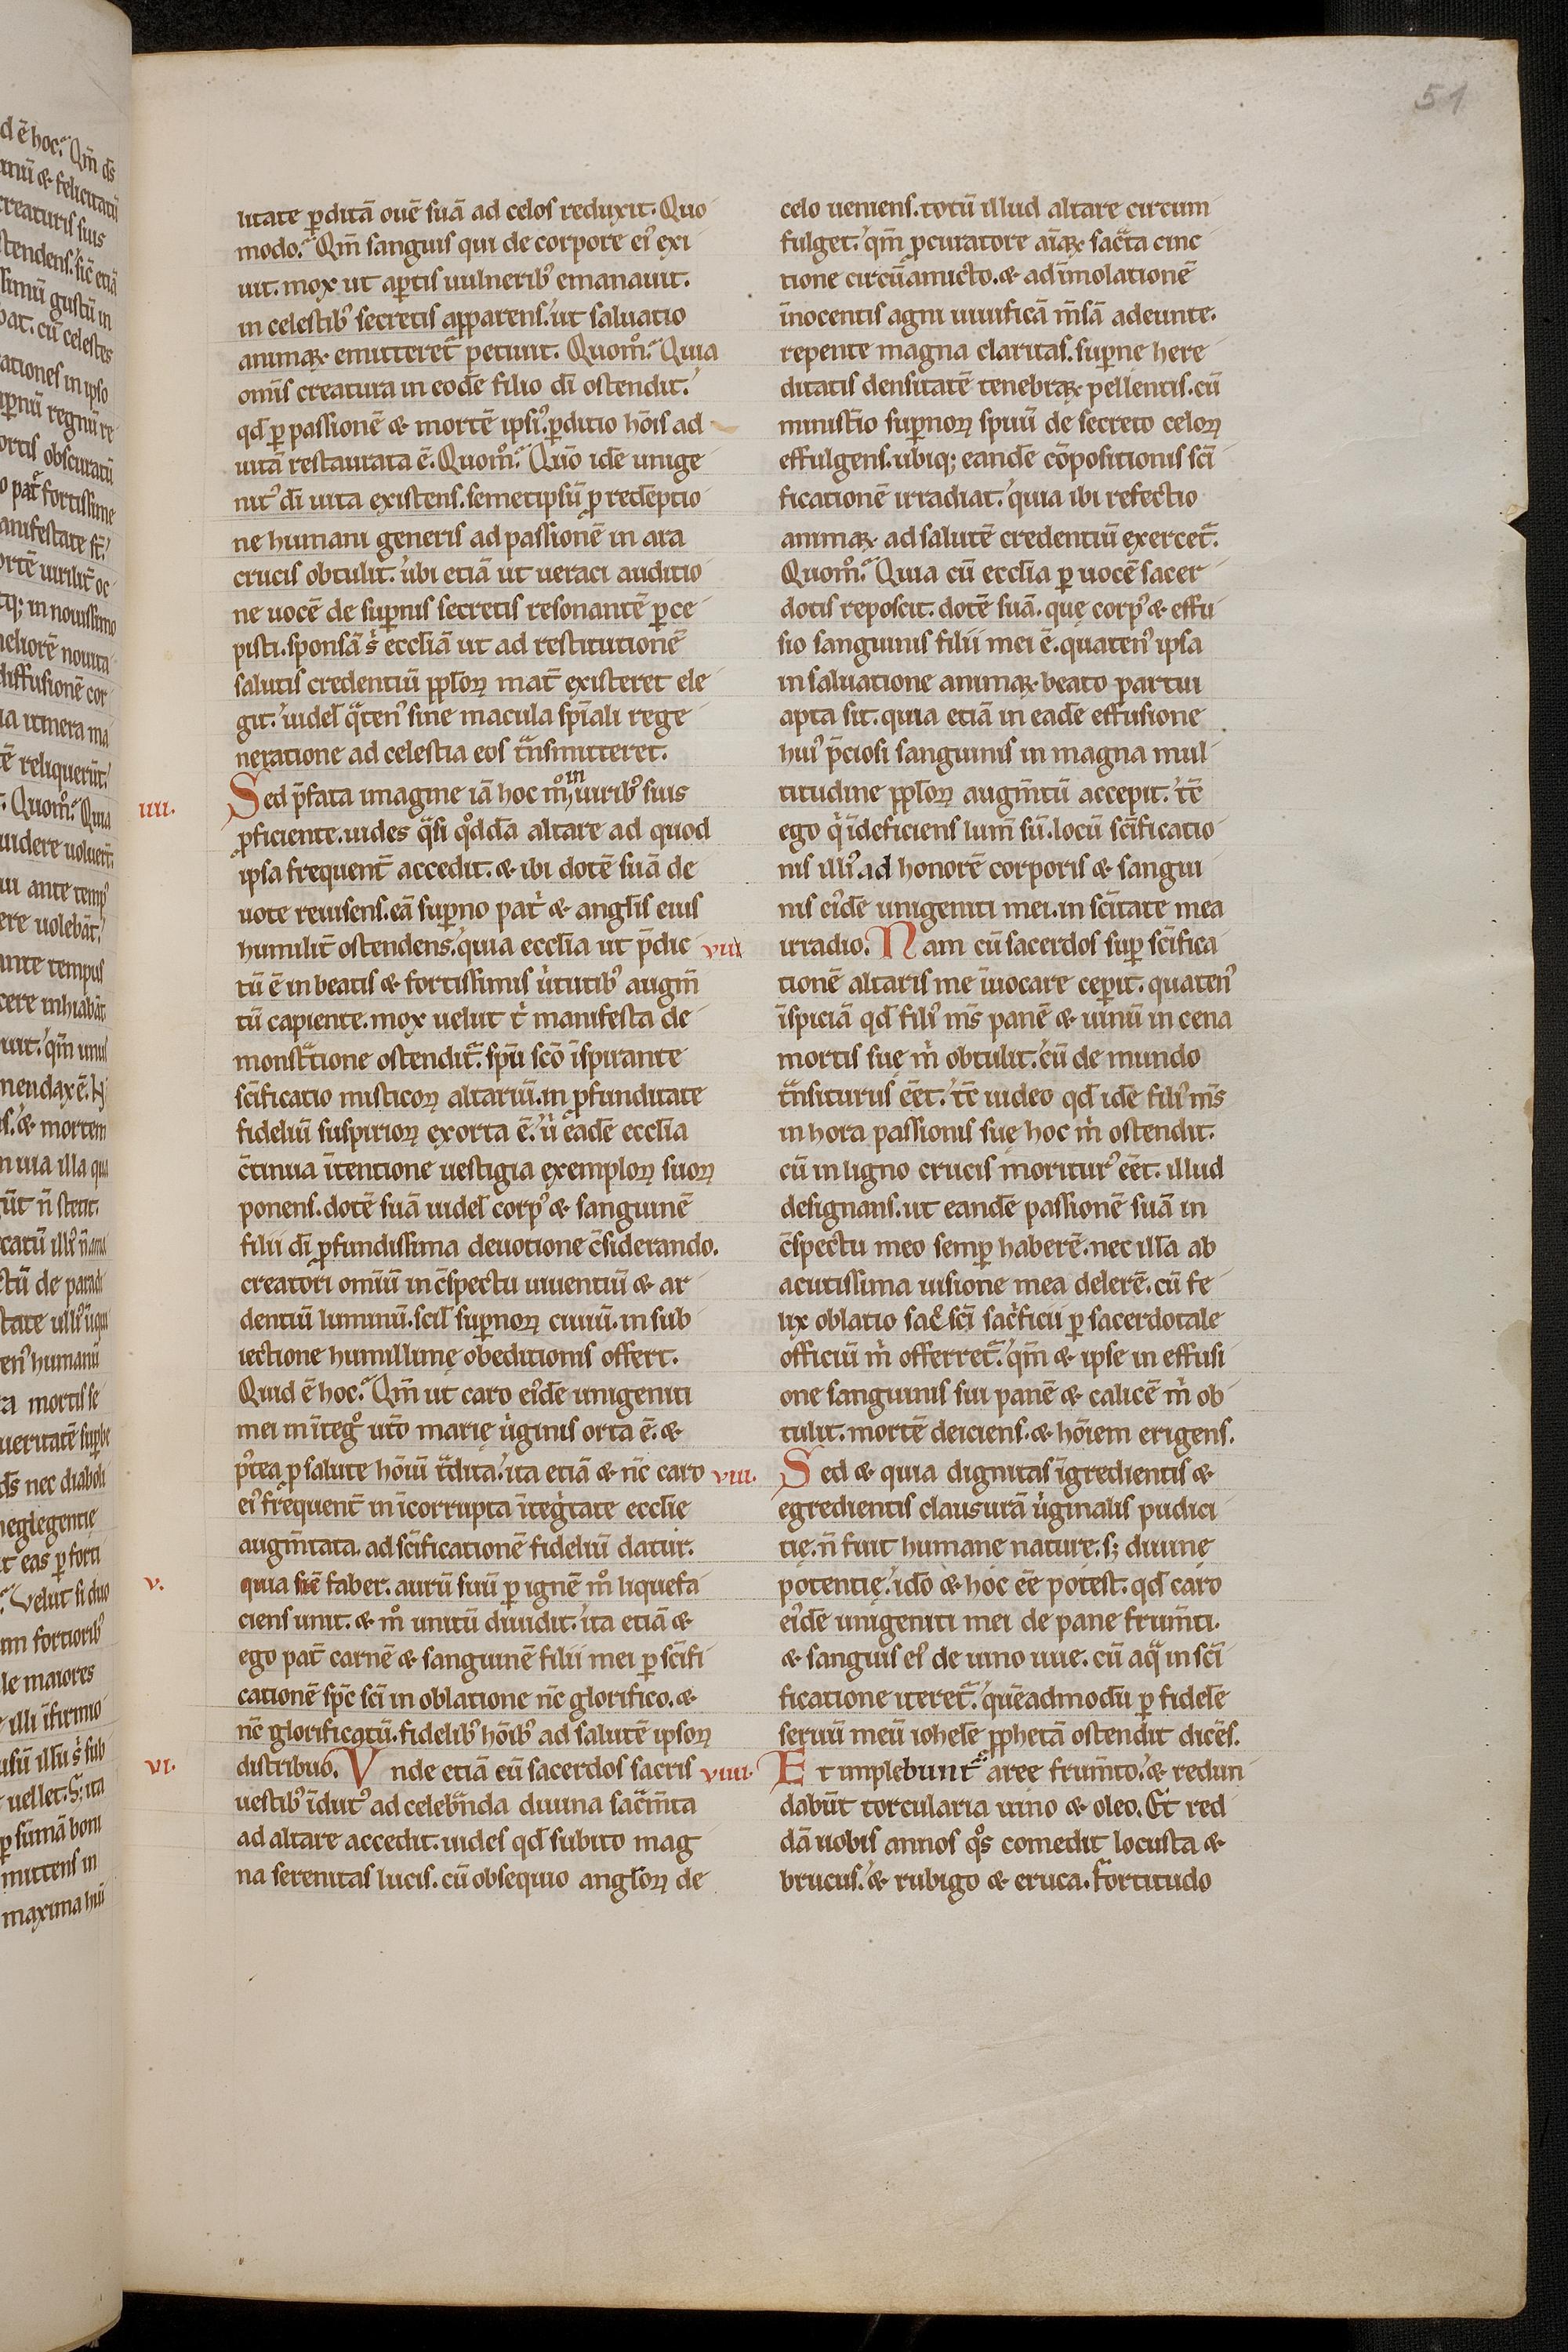 51
litate ꝑditā ouē suā ad celos reduxit. Quo
modo. Qm̄ sanguis qui de corpore ei᷒ exi
uit. mox ut aꝑtis uulnerib᷒ emanauit.
in celestib᷒ secretis apparens. ut saluatio
animaꝝ emitteret᷑ petiuit. Quom̊. Quia
om̄is creatura in eodē filio dī ostendit.
qd̄ ꝑ passionē & mortē ipsi᷒ ꝑditio hōis ad
uitā restaurata ē. Quom̊. Qūo idē unige
nit᷒ dī uita existens. semetipsū ꝓ redēptio
ne humani generis ad passionē in ara
crucis obtulit. ubi etiā ut ueraci auditio
ne uocē de suꝑnis secretis resonantē ꝑce
pisti. sponsā s᷑ eccl̄iā ut ad restitutionē
salutis credentiū ppl̄oꝝ mat̄ existeret ele
git. uidel᷑ q̄ten᷒ sine macula sp̄iali rege
neratione ad celestia eos t̄nsmitteret.
IIII. Sed p̄fata imagine iā hoc m̊ in uirib᷒ suis
ꝓficiente. uides q̄si qd̊dā altare ad quod
ipsa frequent̄ accedit. & ibi dotē suā de
uote reuisens. eā suꝑno pat᷑ & angl̄is eius
humilit̄ ostendens. quia eccl̄ia ut p̄dic
tū ē in beatis & fortissimis u᷑tutib᷒ augm̄
tū capiente. mox uelut t᷑ manifesta de
monst̄tione ostendit᷑. sp̄u scō īspirante
scīficatio misticoꝝ altariū. in ꝓfunditate
fideliū suspirioꝝ exorta ē. u᷑ eadē eccl̄ia
c̄tinua ītentione uestigia exemploꝝ suoꝝ
ponens. dotē suā uidel᷑ corp᷒ & sanguinē
filii dī ꝓfundissima deuotione c̄siderando.
creatori om̄iū in c̄spectu uiuentiū & ar
dentiū luminū. scil᷑ suꝑnoꝝ ciuiū. in sub
iectione humillimę obeditionis offert.
Quid ē hoc. Qm̄ ut caro ei᷒dē unigeniti
mei in īteg̊ ut̄o marię u᷑ginis orta ē. &
p᷒tea ꝓ salute hōiū t̄dita. ita etiā & nc̄ caro
ei᷒ frequent̄ in īcorrupta īteg᷑tate eccl̄ie
augm̄tata. ad scīficationē fideliū datur.
V. quia sic̄ faber. aurū suū ꝑ ignē m̊ liquefa
ciens unit. & m̊ unitū diuidit. ita etiā &
ego pat̄ carnē & sanguinē filii mei ꝑ scīfi
cationē sp̄c scī in oblatione nc̄ glorifico. &
nc̄ glorificatū. fidelib᷒ hōib᷒ ad salutē ipsoꝝ
VI. distribuo. Vnde etiā cū sacerdos sacris
uestib᷒ īdut᷒ ad celeb̄nda diuina sac̄m̄ta
ad altare accedit. uides qd̄ subito mag
na serenitas lucis. cū obsequio angl̄oꝝ de
celo ueniens. totū illud altare circum
fulget. qm̄ ꝓcuratore aīaꝝ sac̄ta cinc
tione circūamicto. & ad īmolationē
īnocentis agni uiuificā m̄sā adeunte.
repente magna claritas. suꝑne here
ditatis densitatē tenebraꝝ pellentis. cū
minist̄io suꝑnoꝝ spiuū de secreto celoꝝ
effulgens. ubiq; eandē cōpositionis scī
ficationē irradiat. quia ibi refectio
animaꝝ ad salutē credentiū exercet᷑.
Quom̊. Quia cū eccl̄ia ꝑ uocē sacer
dotis reposcit. dotē suā. quę corp᷒ & effu
sio sanguinis filii mei ē. quaten᷒ ipsa
in saluatione animaꝝ beato partui
apta sit. quia etiā in eadē effusione
hui᷒ p̄ciosi sanguinis in magna mul
titudine ppl̄oꝝ augm̄tū accepit. tē
ego q᷑ īdeficiens lum̄ sū. locū scīficatio
nis illi᷒ ad honorē corporis & sangui
nis ei᷒dē unigeniti mei. in scītate mea
VII. irradio. Nam cū sacerdos suꝑ scīfica
tionē altaris me īuocare ceꝑit. quaten᷒
īspiciā qd̄ fili᷒ m̄s panē & uinū in cena
mortis suę m᷑ obtulit. cū de mundo
t̄nsiturus eēt. tē uideo qd̄ idē fili᷒ m̄s
in hora passionis suę hoc m᷑ ostendit.
cū in ligno crucis moritur᷒ eēt. illud
designans. ut eandē passionē suā in
c̄spectu meo semꝑ haberē. nec illā ab
acutissima uisione mea delerē. cū fe
lix oblatio sac᷑scī sac᷑ficii ꝑ sacerdotale
officiū m᷑ offerret᷑. qm̄ & ipse in effusi
one sanguinis sui panē & calicē m᷑ ob
tulit. mortē deiciens. & hōiem erigens.
VIII. Sed & quia dignitas īgredientis &
egredientis clausurā u᷑ginalis pudici
tię. n̄ fuit humane nature. s; diuinę
potentię. idō & hoc eē potest. qd̄ caro
ei᷒dē unigeniti mei de pane frum̄ti.
& sanguis ei᷒ de uino uue. cū aq̄ in scī
ficatione iteret᷑. quēadmodū ꝑ fidelē
seruū meū iohelē ꝓphetā ostendit dicēs.
VIIII. Et implebunt᷑ aree frum̄to. & redun
dabūt torcularia uino & oleo. Et red
dā uobis annos q̊s comedit locusta &
brucus. & rubigo & eruca. Fortitudo